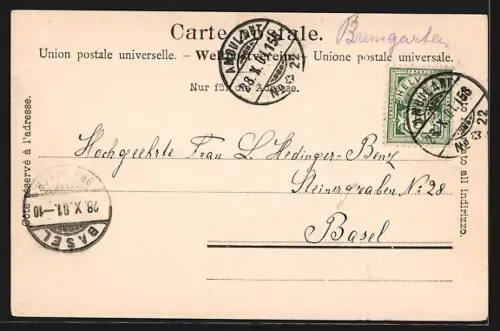 Carte postale.
Bremgarten
Union postale universelle. – Weltpostverein. – Unione postale universale.
Nur für die Adresse.
AMBULANT
28.X.01.158
No 22
HELVETIA
AMBULANT
28.X.01.158
No 22
Hochgeehrte Frau L. Hedinger-Benz
Steinengraben No 28
Basel
Côté réservé à l'adresse.
28.X.01.–10
BASEL
to all indirizzo.